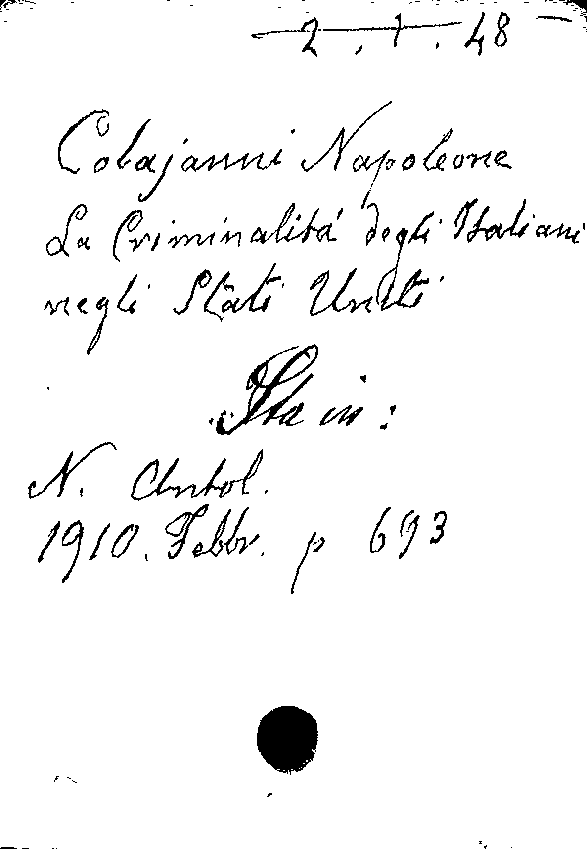 2.1.48
Colajanni Napoleone
La Criminalitá degli Italiani
negli Stati Uniti
Sta in:
N. Antol.
1910. Febbr. p 693